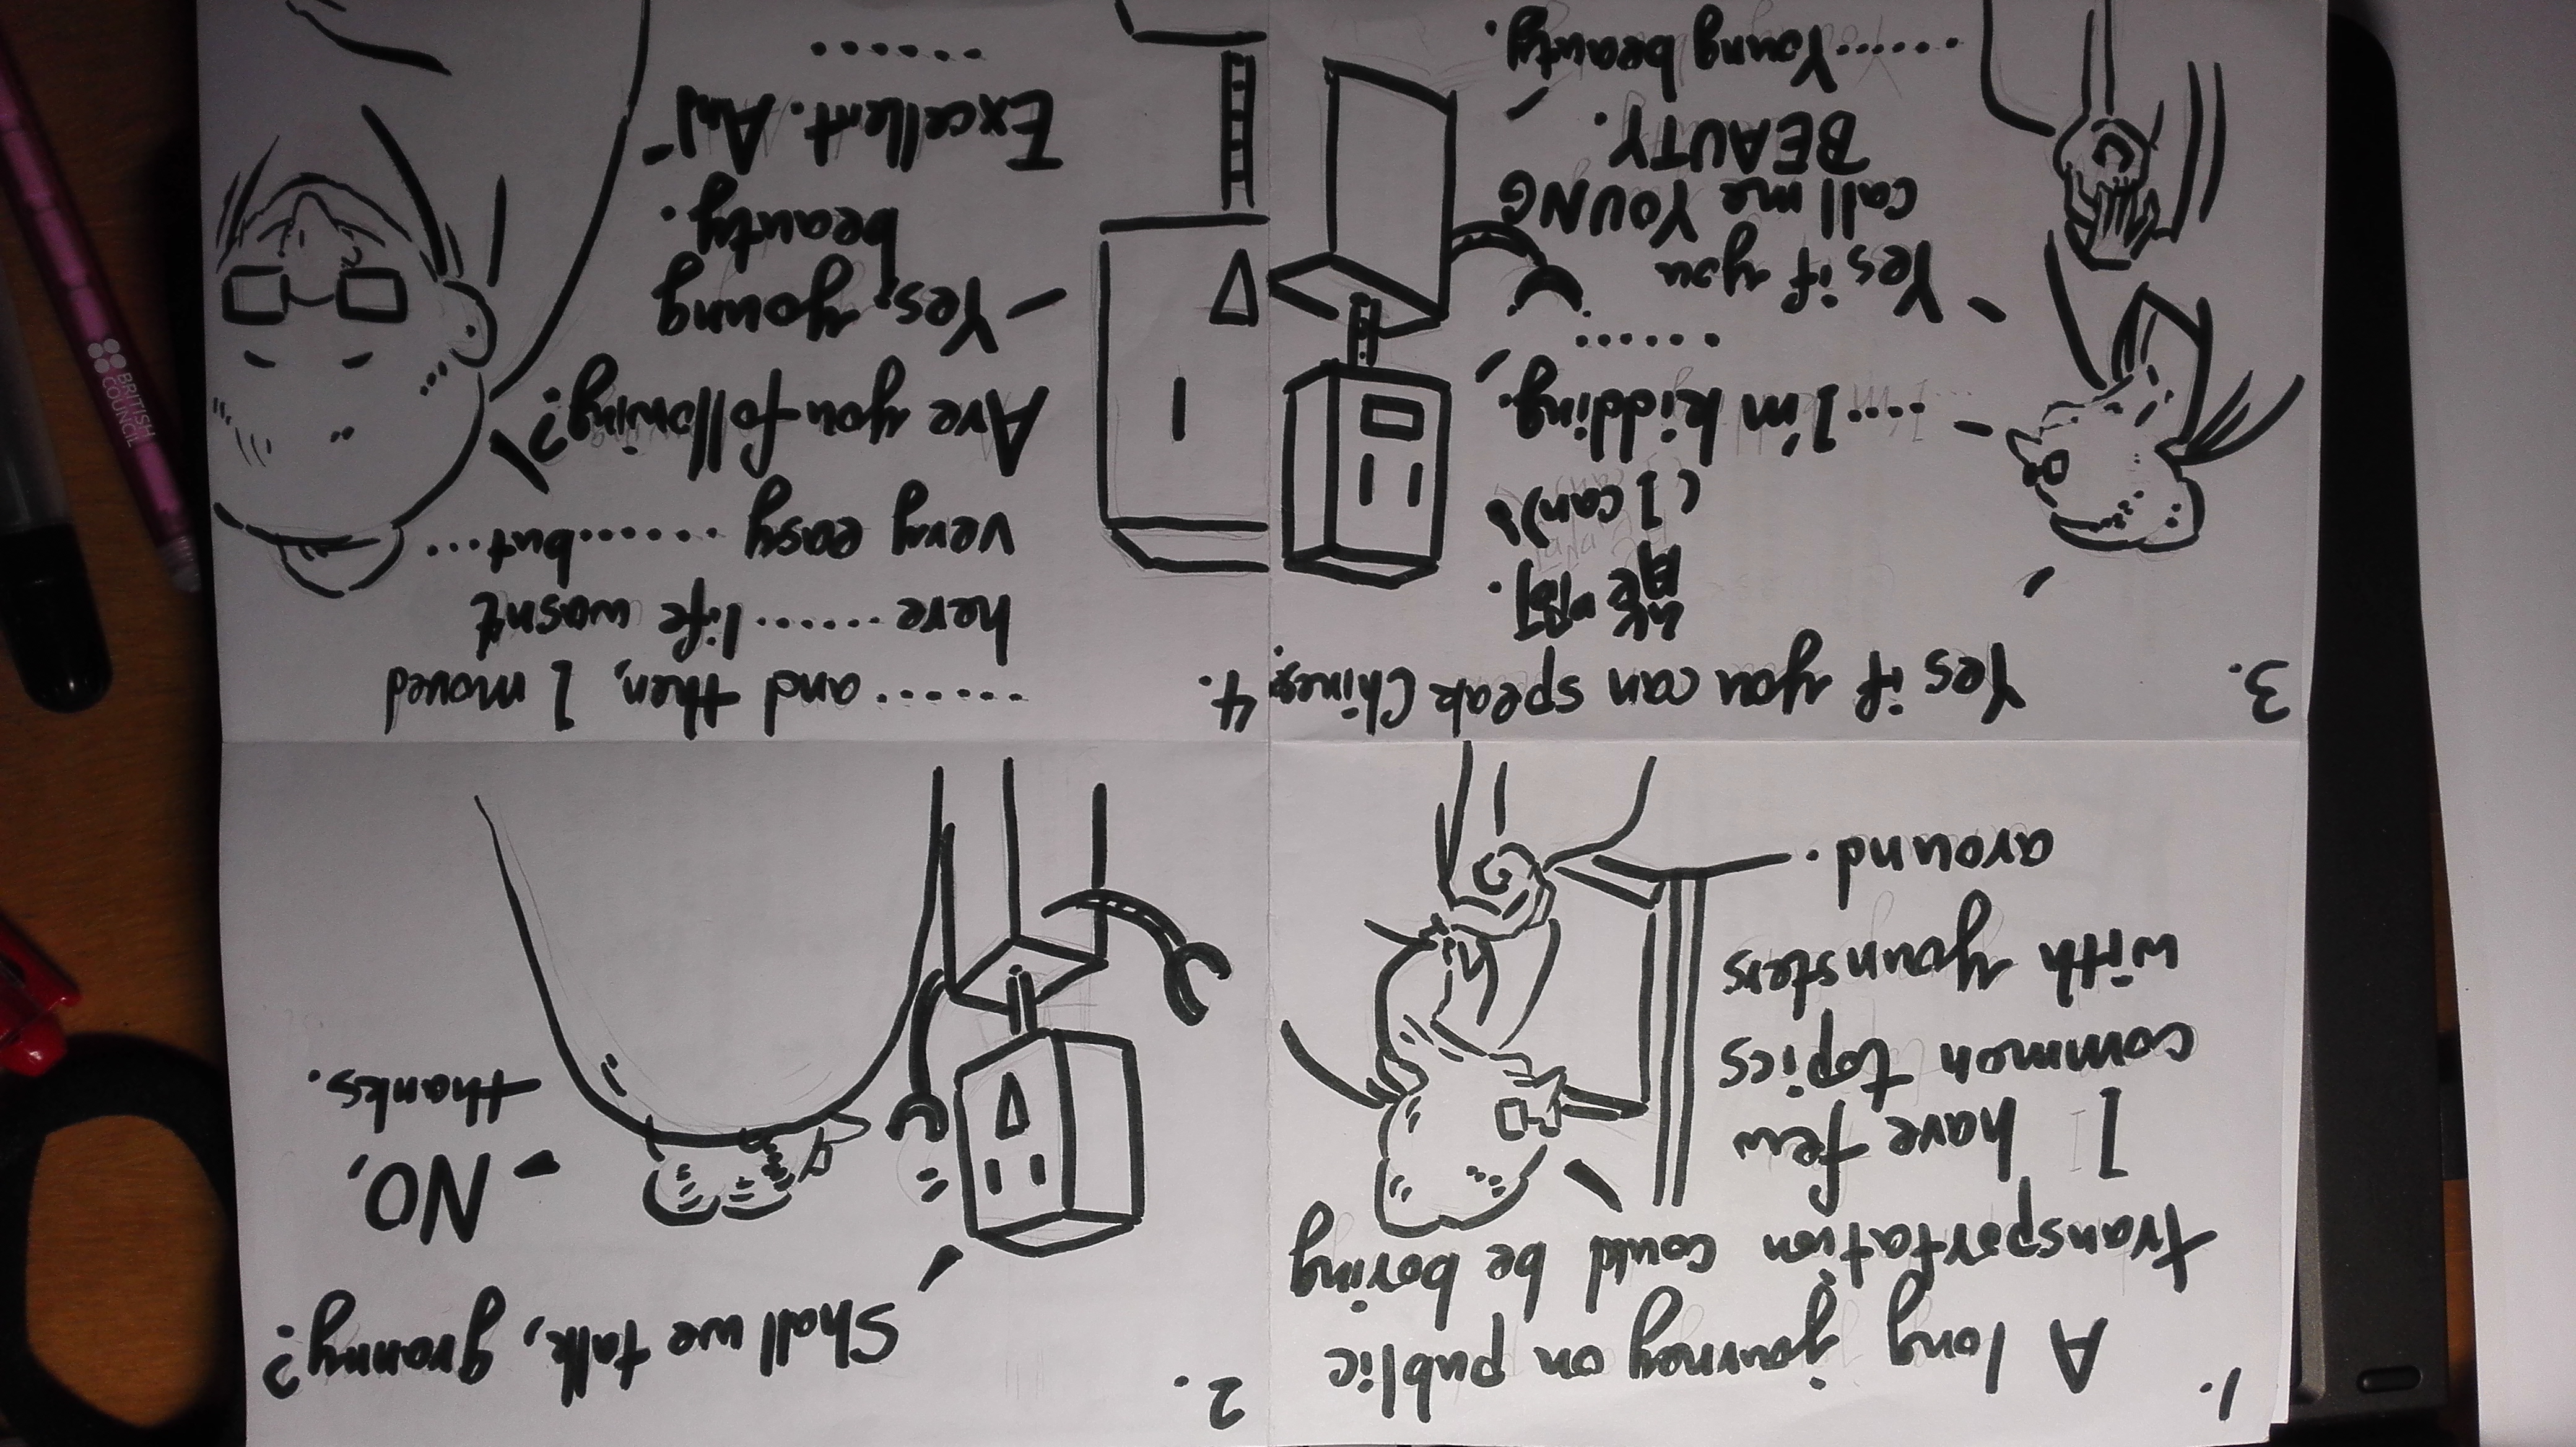 1.
A long journey on public
transportation could be boring
I have few
common topics
with younsters
around.
2.
Shall we talk, granny?
NO,
thanks.
3.
Yes if you can speak Chinese.
(I can)
....I'm kidding.
......
Yes if you
call me YOUNG
BEAUTY.
......Young beauty.
4.
......and then, I moved
here ......life wasn't
very easy .......but...
Are you following?
- Yes, young
beauty.
Excellent. And
......
BRITISH
COUNCIL